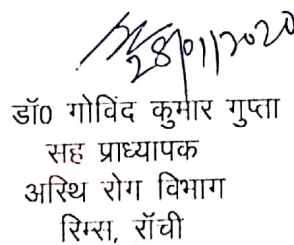 28/01/2020
डॉ0 गोविंद कुमार गुप्ता
सह प्राध्यापक
अस्थि रोग विभाग
रिम्स, राँची